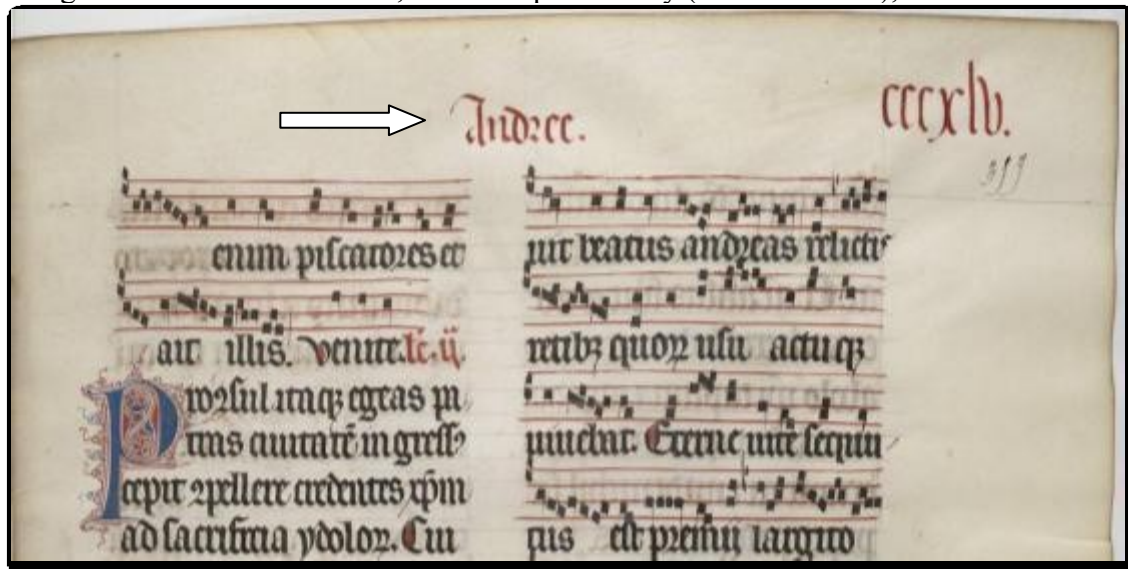 Andree.
cccxlv.
enim piscatores et
ait illis. Venite. lc. ij.
Prorsul itaqz egeas pa
tras ciuitatē ingress⁹
cepit ꝯpellere credentes xp̄m
ad sacrificia ydoloꝝ. Cui
uit beatus andreas relictis
retibꝫ quoꝝ usu actu qꝫ
uiuebat. Eterne uite sequu
tus est premij largito